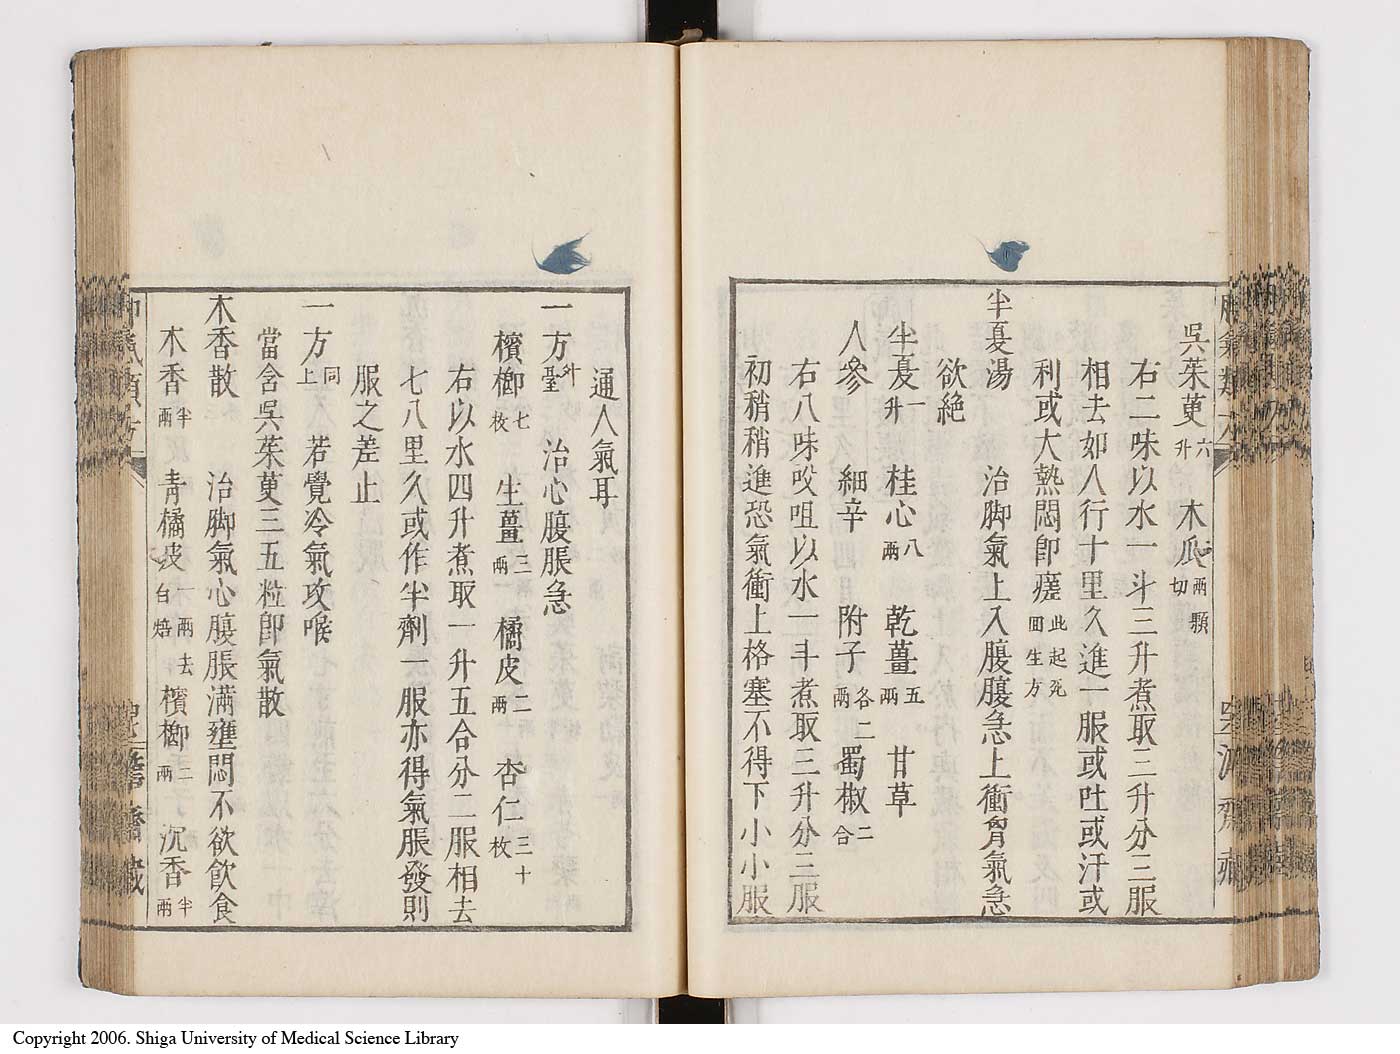 吳茱萸六升 木瓜兩顆切
右二味以水一斗三升煮取三升分三服
相去如人行十里久進一服或吐或汗或
利或大熱悶卽瘥此起死囬生方
半夏湯 治脚氣上入腹腹急上衝胷氣急
欲絕
半夏一升 桂心八兩 乾薑五兩 甘草
人參 細辛 附子各二兩 蜀椒二合
右八味㕮咀以水一斗煮取三升分三服
初稍稍進恐氣衝上格塞不得下小小服
通人氣耳
一方外臺 治心腹脹急
檳榔七枚 生薑三兩 橘皮二兩 杏仁三十枚
右以水四升煮取一升五合分二服相去
七八里久或作半劑一服亦得氣脹發則
服之差止
一方同上 若覺冷氣攻喉
當含吳茱萸三五粒卽氣散
木香散 治脚氣心腹脹滿壅悶不欲飮食
木香半兩 青橘皮一兩去白焙 檳榔二兩 沉香半兩
Copyright 2006. Shiga University of Medical Science Library